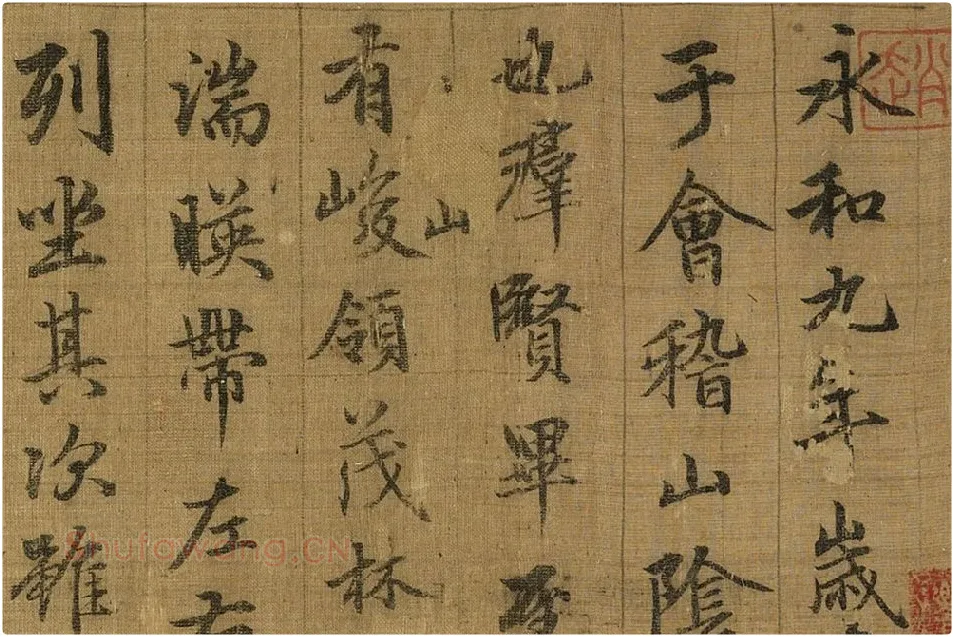 永和九年歲
于會稽山陰
也羣賢畢
山
有峻領茂林
湍暎帶左右
列坐其次雖
Shufawang.CN